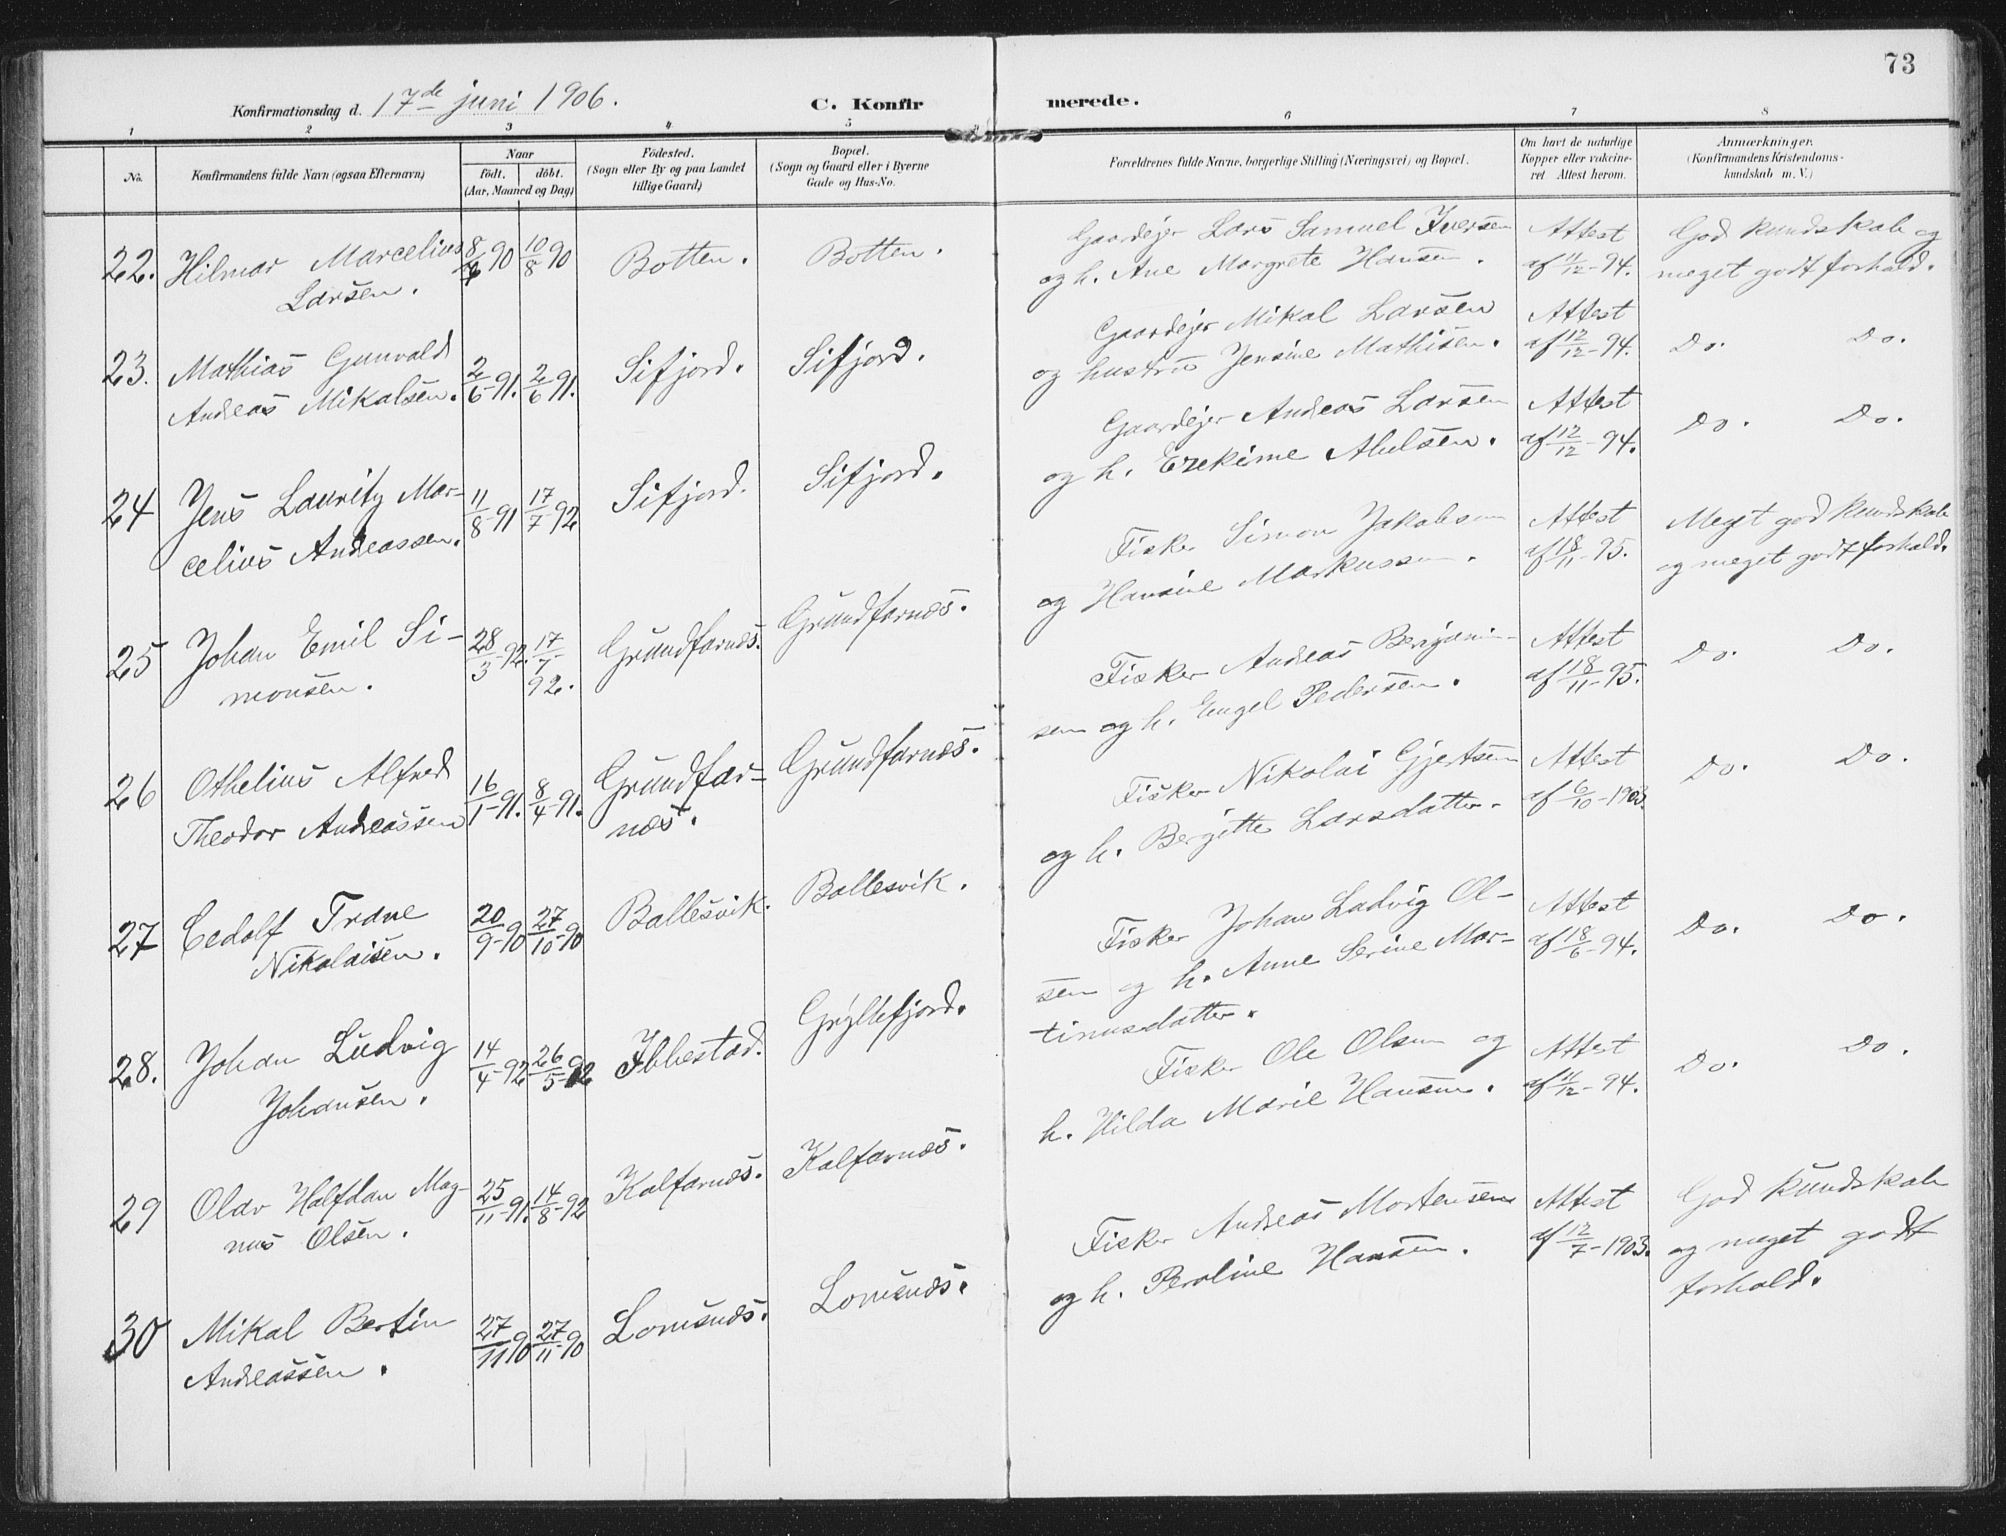 73
Konfirmationsdag d. 17de juni 1906. C. Konfirmerede.
1 2 3 4 5 6 7 8
No.
Konfirmandens fulde Navn (ogsaa Efternavn)
Naar
födt. döbt.
(Aar, Maaned og Dag)
Födested.
(Sogn eller By og paa Landet
tillige Gaard)
Bopæl.
(Sogn og Gaard eller i Byerne
Gade og Hus-No.
Forældrenes fulde Navne, borgerlige Stilling (Næringsvei) og Bopæl.
Om havt de naturlige
Kopper eller vakcine-
ret Attest herom.
Anmærkninger.
(Konfirmandens Kristendoms-
kundskab m. V.)
22. Hilmar Marcelius 8/7 90 10/8 90 Botten. Botten. Gaardejer Lars Samuel Iversen Attest God kundskab og
Larsen. og h. Ane Margrete Hansen. af 11/12-94. meget godt forhold.
23. Mathias Gunvald 2/6-91. 2/6 91. Sifjord. Sifjord. Gaardejer Mikal Larsen Attest Do. Do.
Andreas Mikalsen. og hustru Jensine Mathisen. af 12/12-94.
24 Jens Lauritz Mar- 11/8-91 17/7-92 Sifjord. Sifjord. Gaardejer Andreas Larsen Attest Do. Do.
celius Andreassen. og h. Abelsen. af 12/12-94.
25 Johan Emil Si- 28/3-92. 17/7-92. Grundfarnæs. Grundfarnæs. Fisker Simon Jakobsen Attest Meget god kundskab
monsen. og Hansine Markussen. af 18/11-95. og meget godt forhold.
26 Othelius Alfred 16/1-91. 8/4-91. Grundfar- Grundfarnæs. Fisker Andreas Benjamin- Attest Do. Do.
Theodor Andreassen næs. sen og h. Engel Pedersen. af 18/11-95.
27 Cedolf Trane 20/9-90 27/10-90 Ballesvik. Ballesvik. Fisker Nikolai Gjertsen Attest Do. Do.
Nikolaisen. og h. Bergitte Larsdatter. af 6/10-1903.
28. Johan Ludvig 14/4-92 26/5-92 Ibbestad. Gryllefjord. Fisker Johan Ludvig Ol- Attest Do. Do.
Johansen. sen og h. Anne Serine Mar- af 18/6-94.
tinusdatter.
29 Olav Halfdan Mag- 25/11-91. 14/8-92 Kalfarnæs. Kalfarnæs. Fisker Ole Olsen og Attest Do. Do.
nus Olsen. h. Hilda Marie Hansen. af 11/12-94.
30 Mikal Bertin 27/11 90 27/11-90 Lomsnæs. Lomsnæs. Fisker Andreas Mortensen Attest God kundskab
Andreassen. og h. Peroline Hansen. af 12/7-1903. og meget godt
forhold.